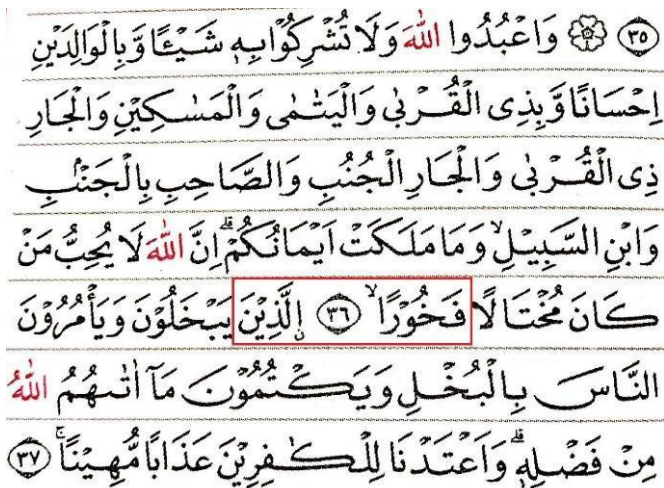 ۳۵ ۞ وَاعْبُدُوا اللّٰهَ وَلَا تُشْرِكُوْا بِهٖ شَيْـًٔا وَّبِالْوَالِدَيْنِ
اِحْسَانًا وَّبِذِى الْقُرْبٰى وَالْيَتٰمٰى وَالْمَسٰكِيْنِ وَالْجَارِ
ذِى الْقُرْبٰى وَالْجَارِ الْجُنُبِ وَالصَّاحِبِ بِالْجَنْۢبِ
وَابْنِ السَّبِيْلِۙ وَمَا مَلَكَتْ اَيْمَانُكُمْؕ اِنَّ اللّٰهَ لَا يُحِبُّ مَنْ
كَانَ مُخْتَالًا فَخُوْرًاۙ ۳۶ ۨالَّذِيْنَ يَبْخَلُوْنَ وَيَأْمُرُوْنَ
النَّاسَ بِالْبُخْلِ وَيَكْتُمُوْنَ مَآ اٰتٰىهُمُ اللّٰهُ
مِنْ فَضْلِهٖؕ وَاَعْتَدْنَا لِلْكٰفِرِيْنَ عَذَابًا مُّهِيْنًاۚ ۳۷